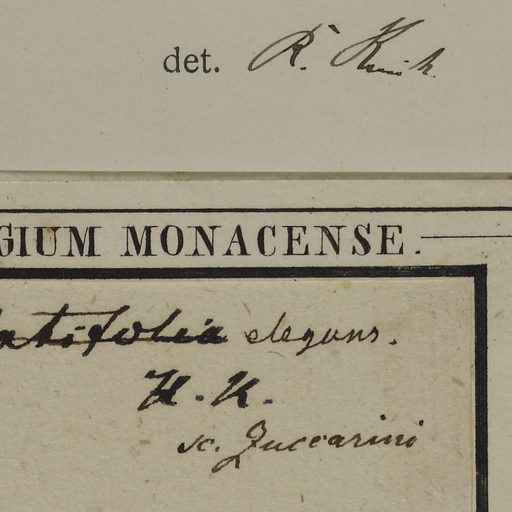 det. R. Knuth.
GIUM MONACENSE.
latifolia elegans.
H. K.
sc. Zuccarini